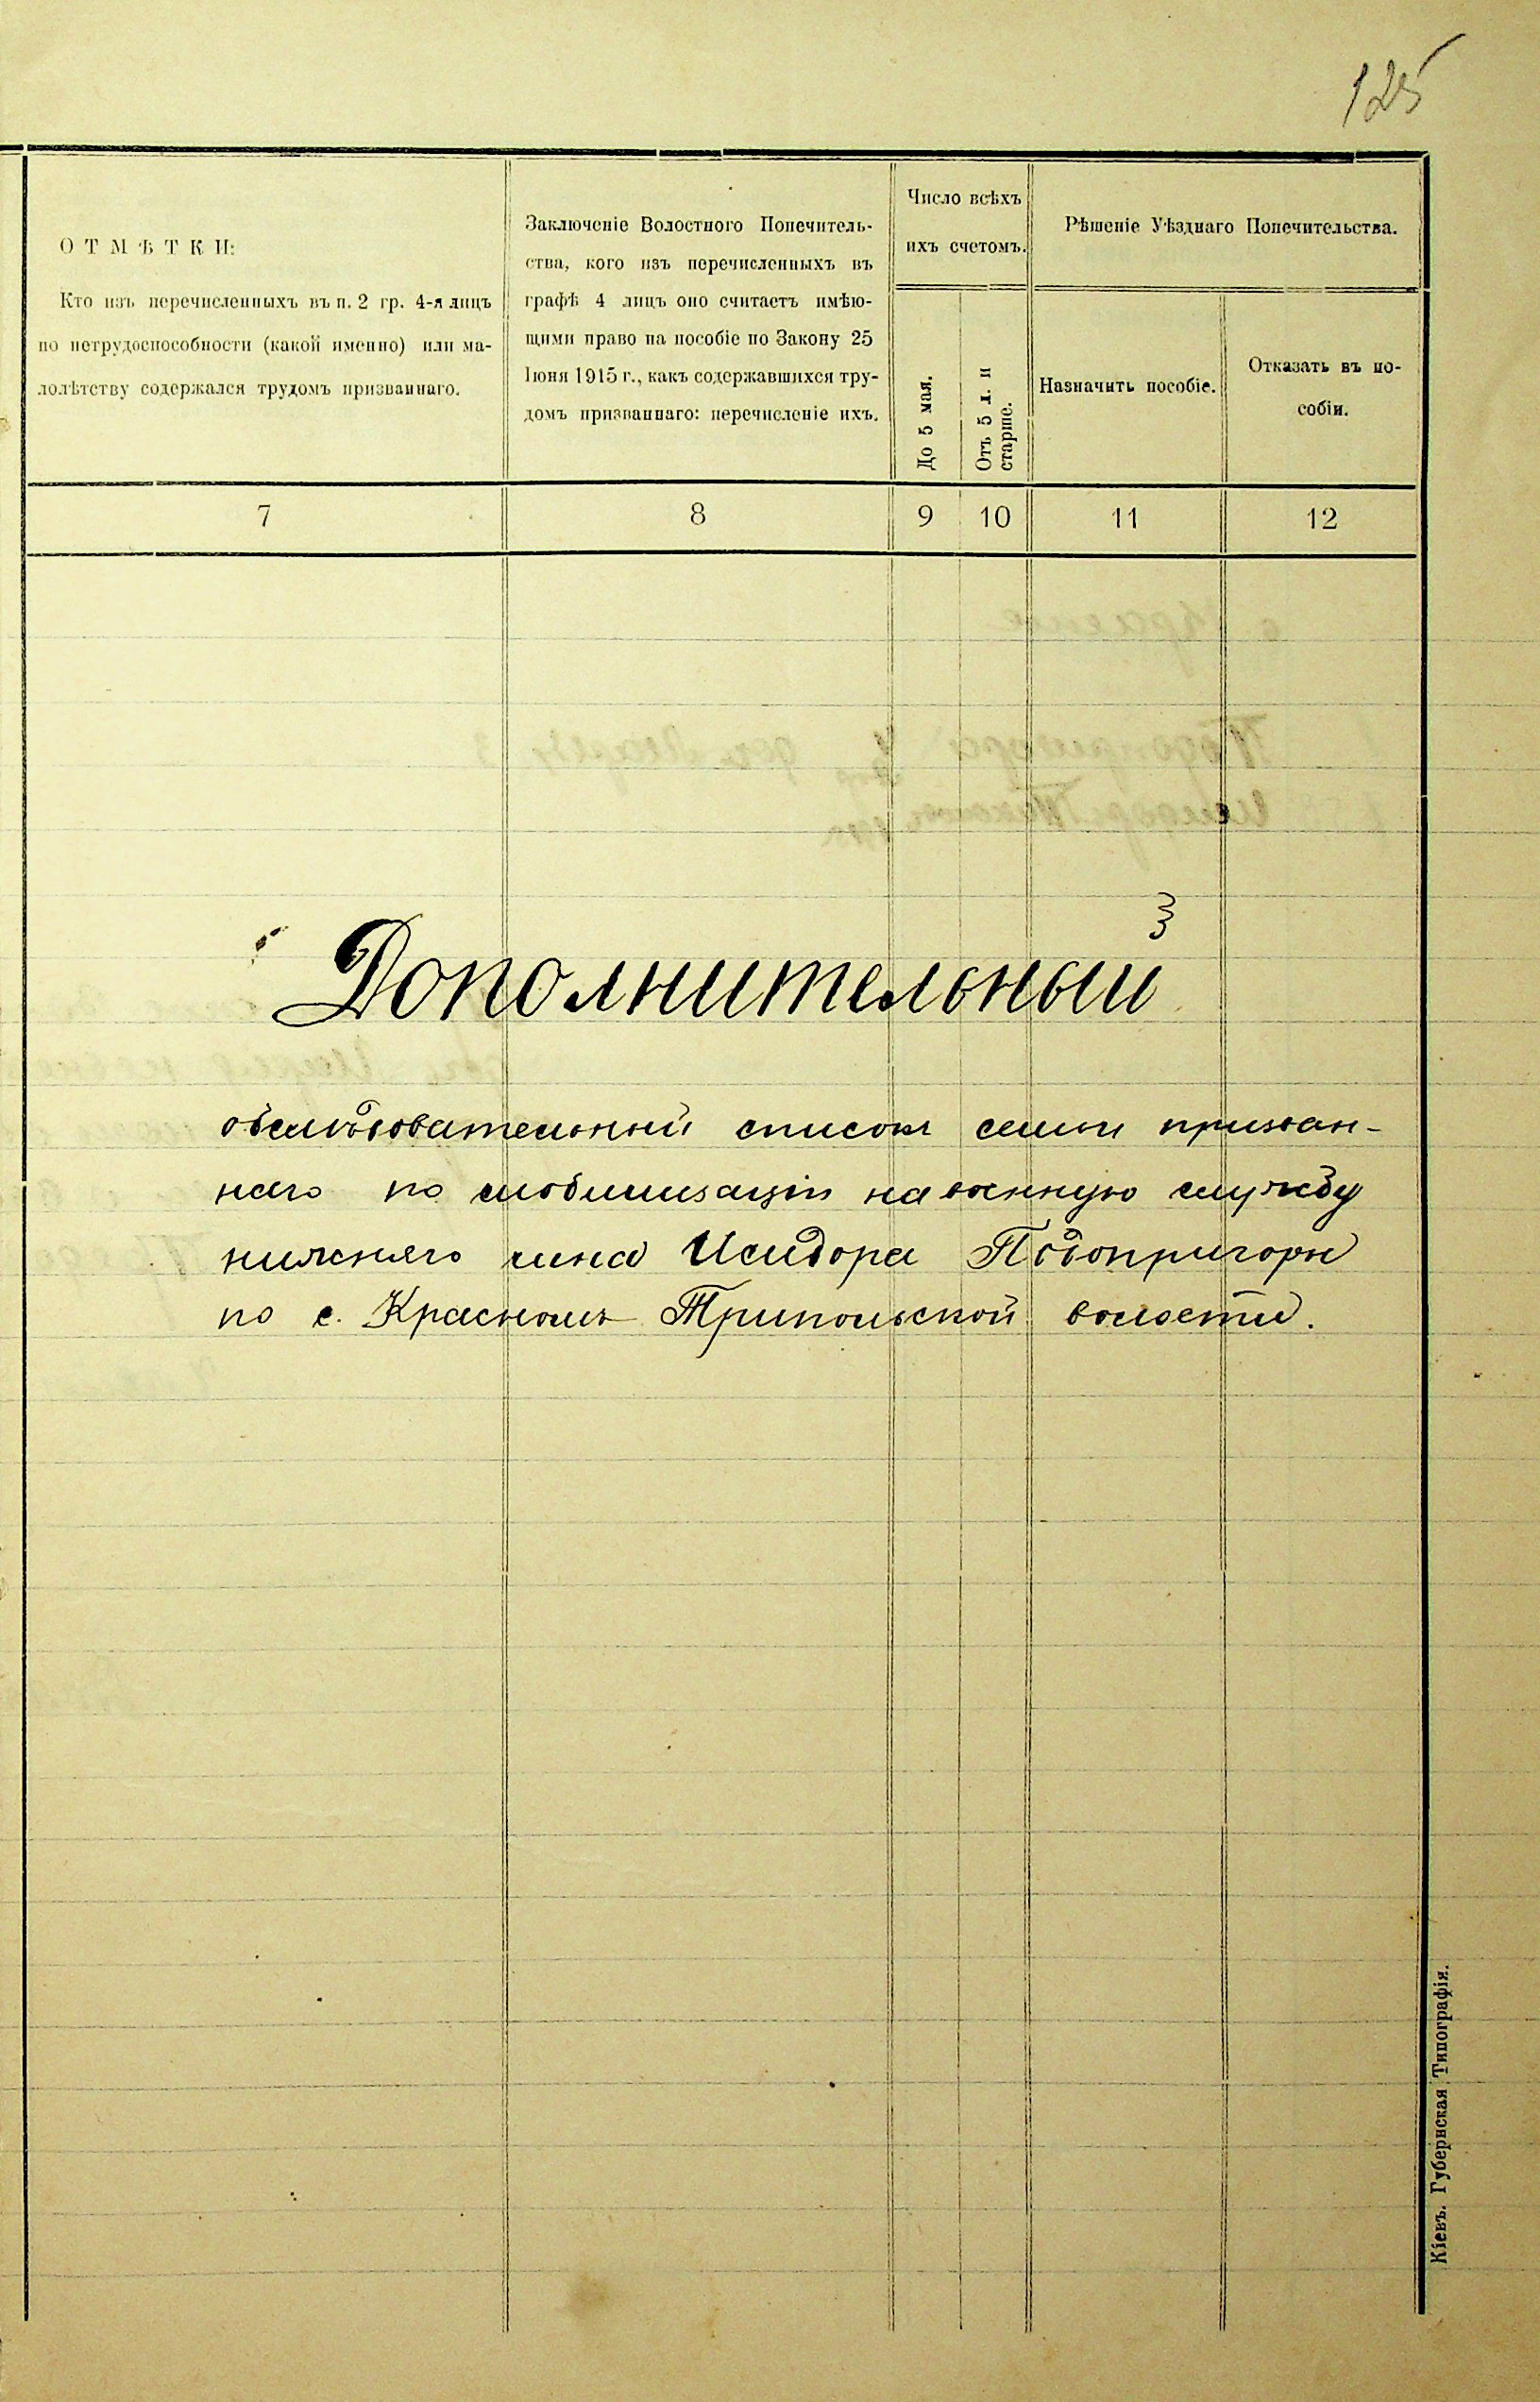 125
ОТМѢТКИ:
Кто изъ перечисленныхъ въ п. 2 гр. 4-я лицъ
по нетрудоспособности (какой именно) или ма-
лолѣтству содержался трудомъ призваннаго.
Заключеніе Волостного Попечитель-
ства, кого изъ перечисленныхъ въ
графѣ 4 лицъ оно считаетъ имѣю-
щими право на пособіе по Закону 25
Іюня 1915 г., какъ содержавшихся тру-
домъ призваннаго: перечисленіе ихъ.
Число всѣхъ
ихъ счетомъ.
До 5 мая.
Отъ 5 л. и
старше.
Рѣшеніе Уѣзднаго Попечительства.
Назначить пособіе.
Отказать въ по-
собіи.
7 8 9 10 11 12
Дополнительный
обслѣдовательный списокъ семьи призван-
наго по мобилизаціи на военную службу
нижняго чина Исидора Подопригоры
по с. Красному Трипольской волости.
Кіевъ. Губернская Типографія.